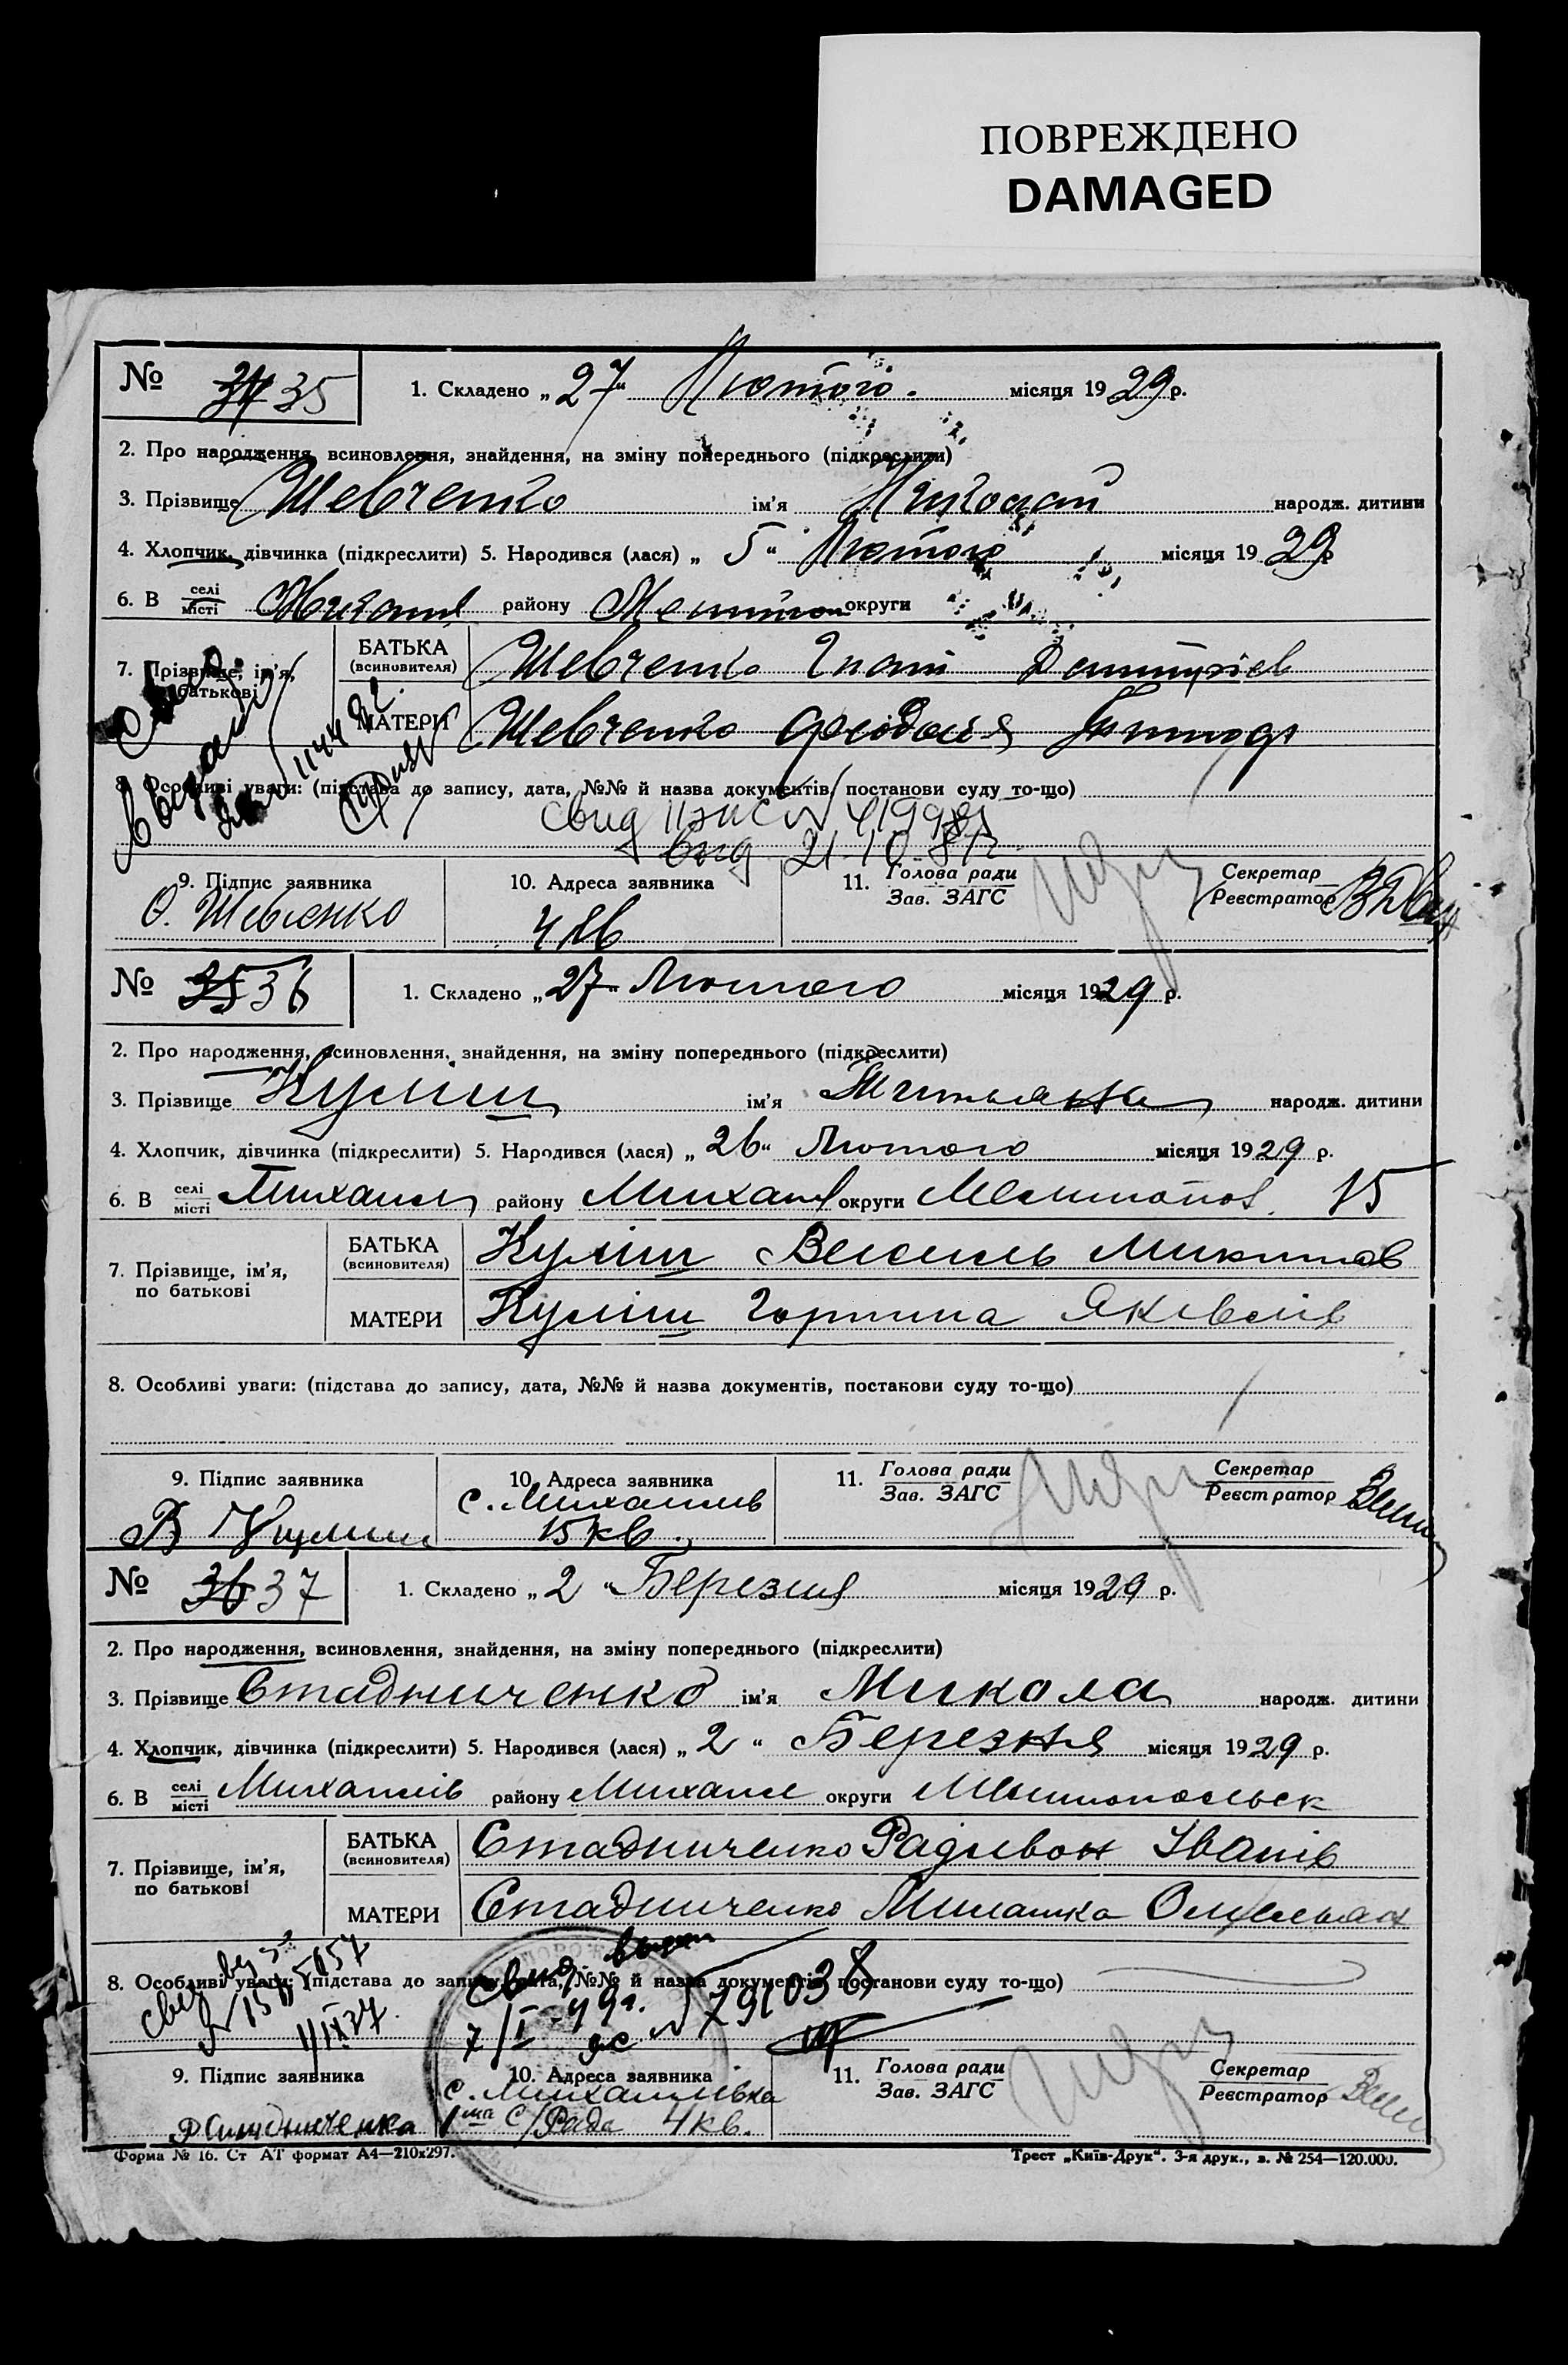 ПОВРЕЖДЕНО
DAMAGED
№ 34 35
1. Складено „27“ Лютого. місяця 1929 р.
2. Про народження, всиновлення, знайдення, на зміну попереднього (підкреслити)
3. Прізвище Шевченко ім'я Николай народж. дитини
4. Хлопчик, дівчинка (підкреслити) 5. Народився (лася) „5“ Лютого місяця 1929 р
6. В селі місті району округи
7. Прізвище, ім'я, по батькові
БАТЬКА (всиновителя) Шевченко Гнат Дмитриев
МАТЕРИ Шевченко
8. Особливі уваги: (підстава до запису, дата, №№ й назва документів, постанови суду то-що)
свид
9. Підпис заявника О. Шевченко
10. Адреса заявника 4 кв
11. Голова ради Зав. ЗАГС
Секретар Реєстратор
№ 35 36
1. Складено „27“ Лютого місяця 1929 р.
2. Про народження, всиновлення, знайдення, на зміну попереднього (підкреслити)
3. Прізвище Куліш ім'я народж. дитини
4. Хлопчик, дівчинка (підкреслити) 5. Народився (лася) „26“ Лютого місяця 1929 р.
6. В селі місті Михайл району Михайл округи Мелитопов. 15
7. Прізвище, ім'я, по батькові
БАТЬКА (всиновителя) Куліш Василь Микитов
МАТЕРИ Куліш Горпина Яківлів
8. Особливі уваги: (підстава до запису, дата, №№ й назва документів, постанови суду то-що)
9. Підпис заявника В Кулиш
10. Адреса заявника с. Михайлів 15 кв.
11. Голова ради Зав. ЗАГС
Секретар Реєстратор
№ 36 37
1. Складено „2“ Березня місяця 1929 р.
2. Про народження, всиновлення, знайдення, на зміну попереднього (підкреслити)
3. Прізвище Стадниченко ім'я Микола народж. дитини
4. Хлопчик, дівчинка (підкреслити) 5. Народився (лася) „2“ Березня місяця 1929 р.
6. В селі місті Михайлів району Михайл округи Мелитопольск
7. Прізвище, ім'я, по батькові
БАТЬКА (всиновителя) Стадниченко Радивон Іванів
МАТЕРИ Стадниченко Милашка Омельян
8. Особливі уваги: (підстава до запису, дата, №№ й назва документів, постанови суду то-що)
свид выдан
7/I-49г. № 791038
9. Підпис заявника Р Стадниченко
10. Адреса заявника с. Михайлівка 1ша С/Рада 4 кв.
11. Голова ради Зав. ЗАГС
Секретар Реєстратор
Форма № 16. Ст АТ формат А4—210х297.
Трест „Київ-Друк“. 3-я друк., з. № 254—120.000.